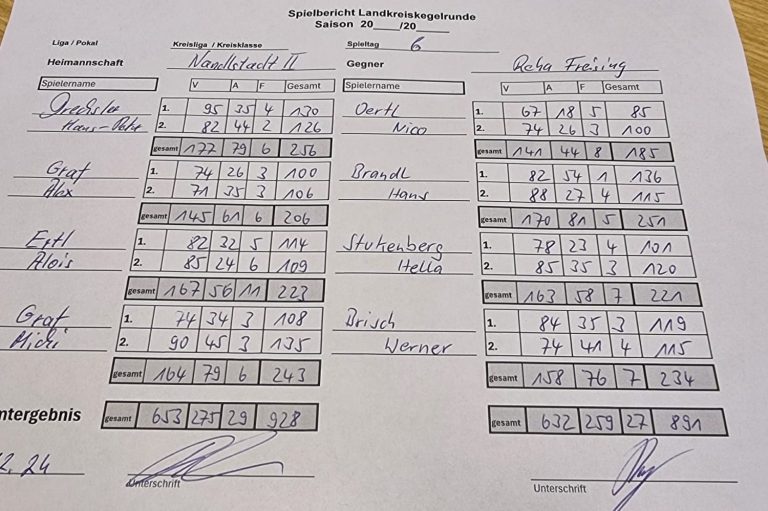 Spielbericht Landkreiskegelrunde
Saison 20__/20__
Liga / Pokal Kreisliga / Kreisklasse Spieltag 6
Heimannschaft Nandlstadt II Gegner Reha Freising
Spielername V A F Gesamt Spielername V A F Gesamt
Drechsler 1. 95 35 4 130 Oertl 1. 67 18 5 85
Hans-Peter 2. 82 44 2 126 Nico 2. 74 26 3 100
gesamt 177 79 6 256 gesamt 141 44 8 185
Graf 1. 74 26 3 100 Brandl 1. 82 54 1 136
Alex 2. 71 35 3 106 Hans 2. 88 27 4 115
gesamt 145 61 6 206 gesamt 170 81 5 251
Ertl 1. 82 32 5 114 Stukenberg 1. 78 23 4 101
Alois 2. 85 24 6 109 Hella 2. 85 35 3 120
gesamt 167 56 11 223 gesamt 163 58 7 221
Graf 1. 74 34 3 108 Brisch 1. 84 35 3 119
Michi 2. 90 45 3 135 Werner 2. 74 41 4 115
gesamt 164 79 6 243 gesamt 158 76 7 234
ntergebnis gesamt 653 275 29 928 gesamt 632 259 27 891
2.24
Unterschrift Unterschrift